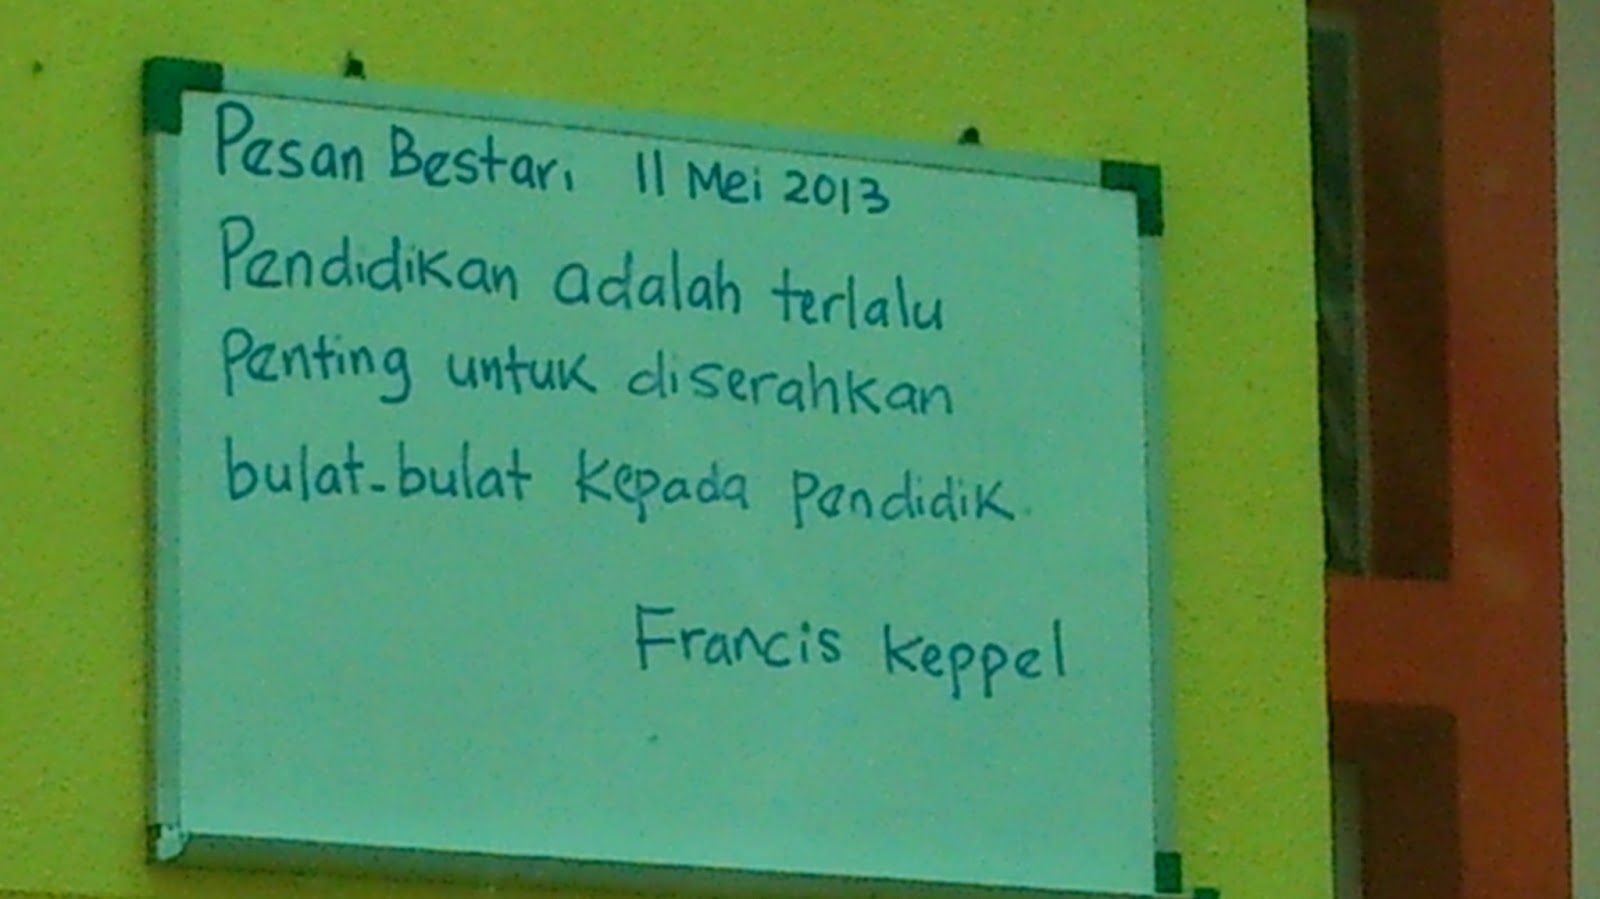 Pesan Bestari 11 Mei 2013
Pendidikan adalah terlalu
Penting untuk diserahkan
bulat-bulat kepada Pendidik.
Francis Keppel